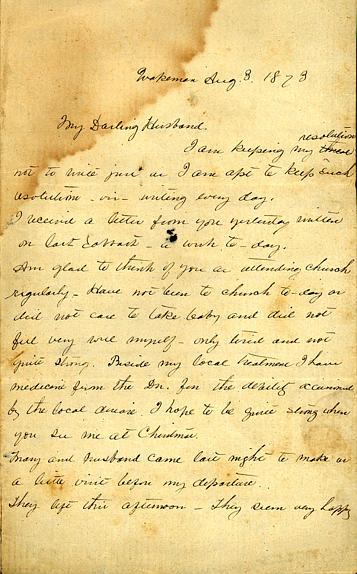 Wakeman Aug 3. 1873
My Darling Husband.
resolution
I am keeping my
not to write just as I am apt to keep such
resolution - viz - writing every day.
I received a letter from you yesterday written
on last Sabbath - a week to-day.
Am glad to think of you as attending church
regularly - Have not been to church to-day as
did not care to take baby and did not
feel very well myself - only tired and not
quite strong. Beside my local treatment I have
medicine from the Dr. for the debility occasioned
by the local disease. I hope to be quite strong when
you see me at Christmas.
Mary and Husband came last night to make us
a little visit before my departure.
They left this afternoon - They seem very happy